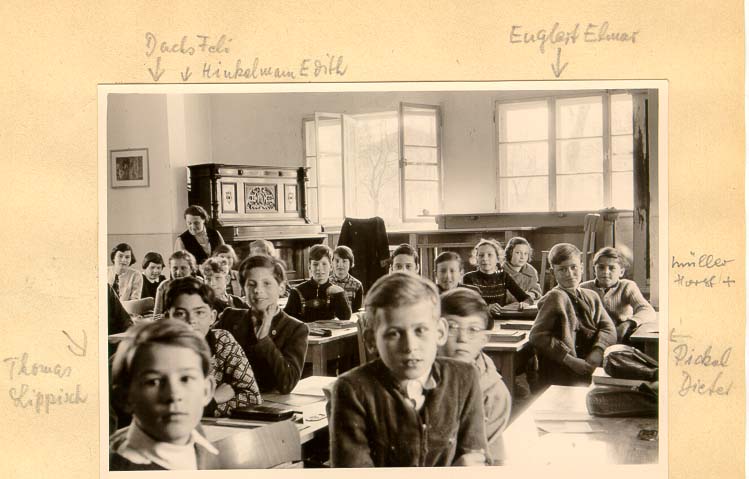 Dachs Feli
Hinkelmann Edith
Englert Elmar
Müller
Horst +
Thomas
Lippisch
Pickel
Dieter